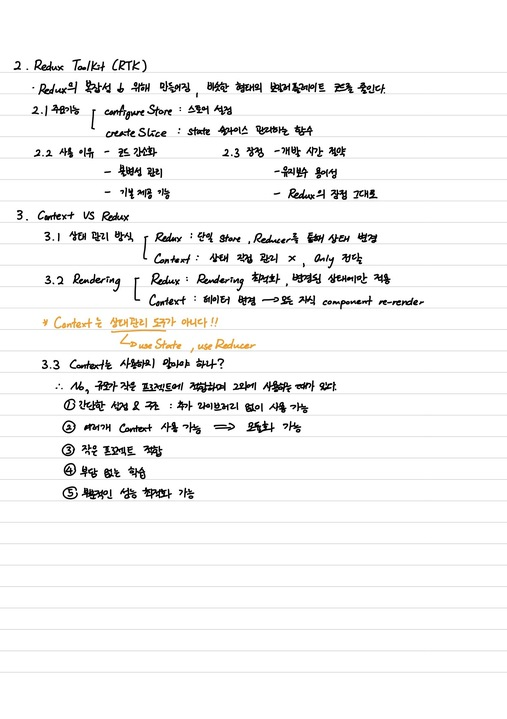 2. Redux Toolkit (RTK)
· Redux의 복잡성 ↓ 위해 만들어짐, 비슷한 형태의 보일러플레이트 코드를 줄인다.
2.1 주요기능 configureStore : 스토어 설정
createSlice : state 슬라이스 관리하는 함수
2.2 사용 이유 - 코드 간소화 2.3 장점 - 개발 시간 절약
- 불변성 관리 - 유지보수 용이성
- 기본 제공 기능 - Redux의 장점 그대로
3. Context VS Redux
3.1 상태 관리 방식 Redux : 단일 Store, Reducer를 통해 상태 변경
Context : 상태 직접 관리 X, Only 전달
3.2 Rendering Redux : Rendering 최적화, 변경된 상태에만 적용
Context : 데이터 변경 → 모든 자식 component re-render
* Context는 상태관리 도구가 아니다!!
↳ useState, useReducer
3.3 Context는 사용하지 말아야 하나?
∴ No, 규모가 작은 프로젝트에 적합하며 그외에 사용하는 때가 있다.
① 간단한 설정 & 구조 : 추가 라이브러리 없이 사용 가능
② 여러개 Context 사용 가능 ⇒ 모듈화 가능
③ 작은 프로젝트 적합
④ 부담 없는 학습
⑤ 부분적인 성능 최적화 가능